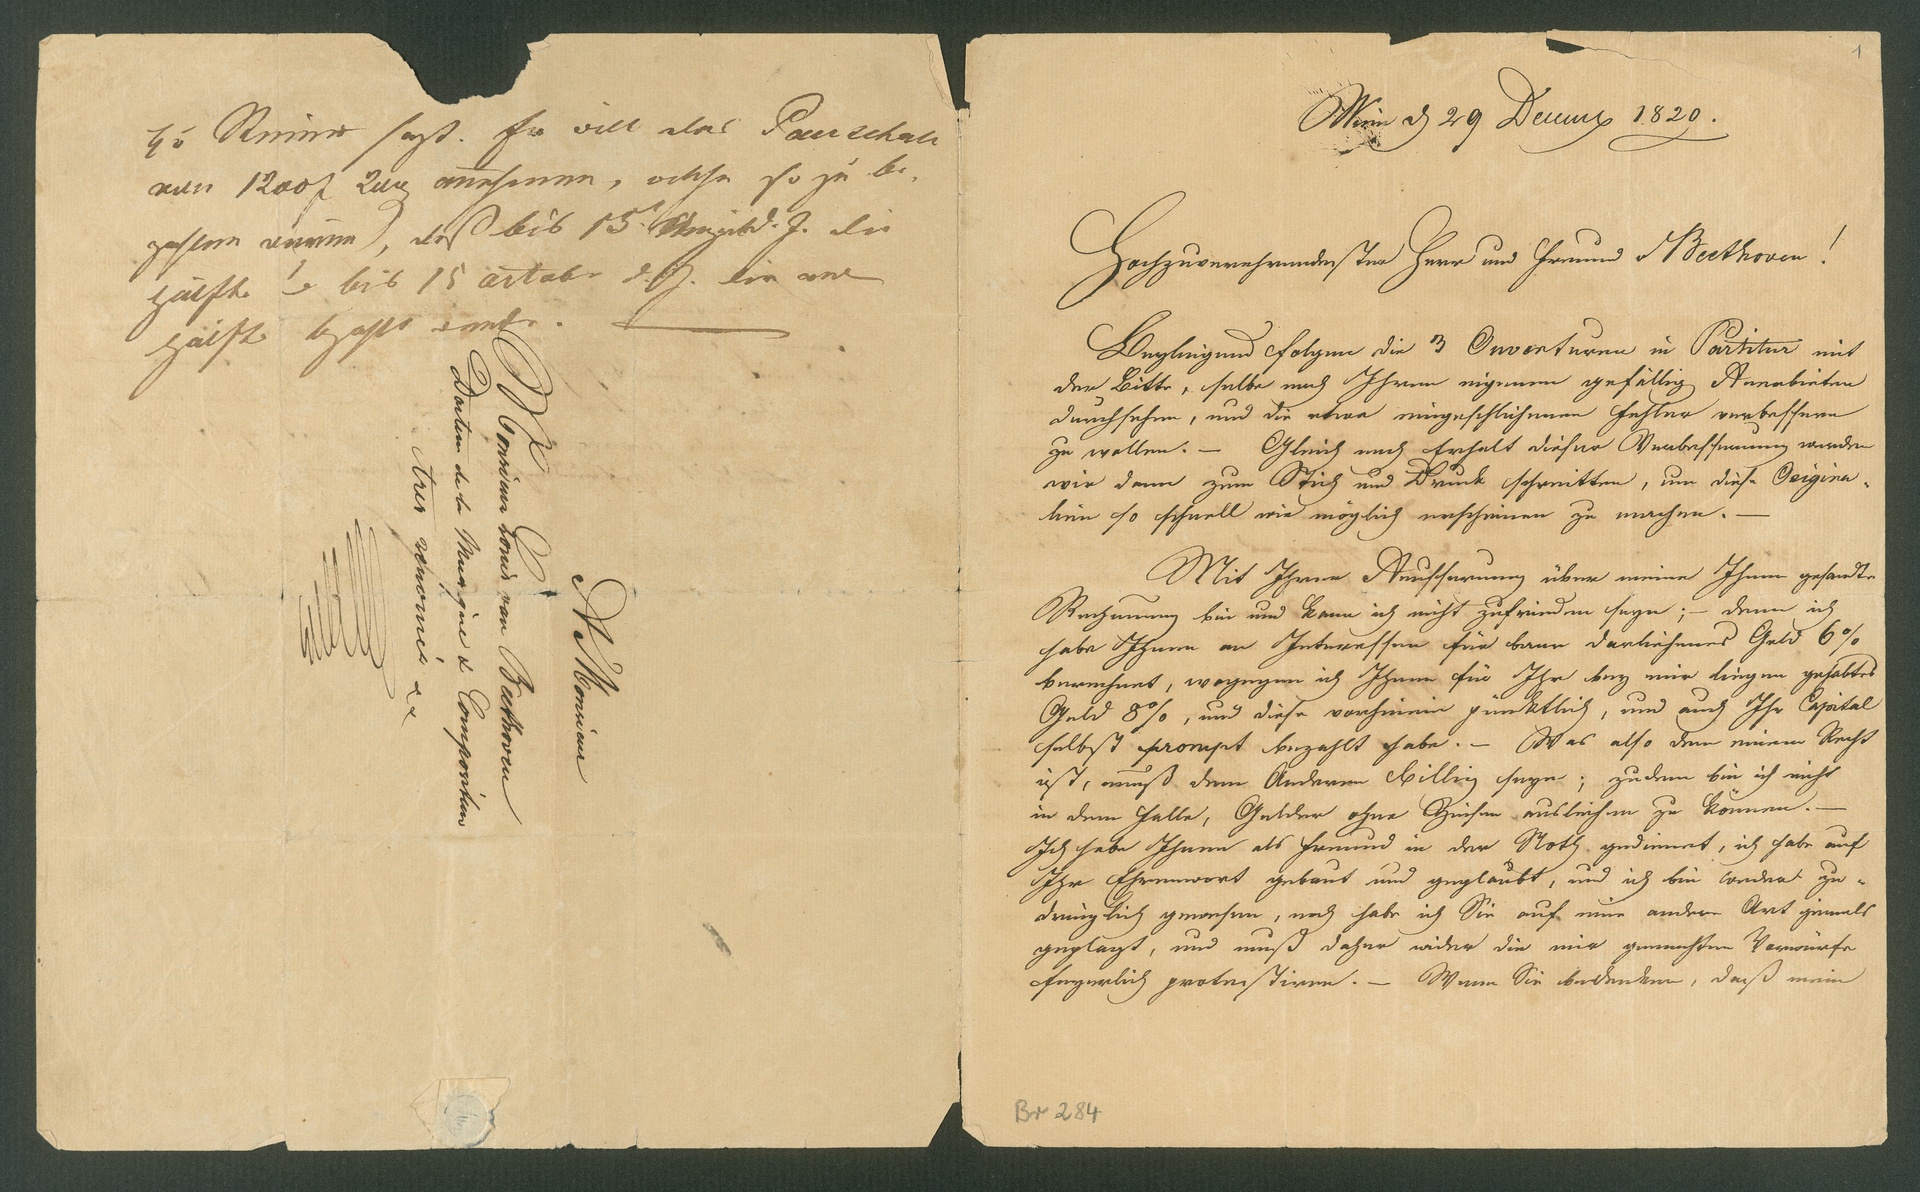 Hr Steiner sagt. Er will das Pauschale
von 1200f annehmen, welche so zu be-
zahlen wären, daß bis 15 d. J. die
Hälfte & bis 15 october d. J. die and
Hälfte bezahlt werde.
A Monsieur
Monsieur Louis van Beethoven
de la Musique & Compositeur
tres renomé
1
Wien d 29 Decemb 1820.
Hochzuverehrendster Herr und Freund v Beethoven!
Beyliegend folgen die 3 Ouverturen in Partitur mit
der Bitte, selbe nach Ihrem eigenen gefällig Anerbieten
durchsehen, und die etwa eingeschlichenen Fehler verbessern
zu wollen. – Gleich nach Erhalt dieser Verbesserung werden
wir dann zum Stich und Druck schreitten, um diese Origina-
lien so schnell wie möglich erscheinen zu machen. –
Mit Ihrer Aeusserung über meine Ihnen gesandte
Rechnung bin und kann ich nicht zufrieden seyn; – denn ich
habe Ihnen an Interessen für baar darliehenes Geld 6%
berechnet, wogegen ich Ihnen für Ihr bey mir liegen gehabtes
Geld 8%, und diese vorhinein pünktlich, und auch Ihr Capital
selbst prompt bezahlt habe. – Was also dem einem Recht
ist, muß dem Anderen Billig seyn; zudem bin ich nicht
in dem Falle, Gelder ohne Zinsen ausleihen zu können. –
Ich habe Ihnen als Freund in der Noth gedienet, ich habe auf
Ihr Ehrenwort gebaut und geglaubt, und ich bin weder zu-
dringlich gewesen, noch habe ich Sie auf eine andere Art jemals
geplagt, und muß daher wider die mir gemachten Vorwürfe
feyerlich protestiren. – Wenn Sie bedenken, daß mein
Br 284